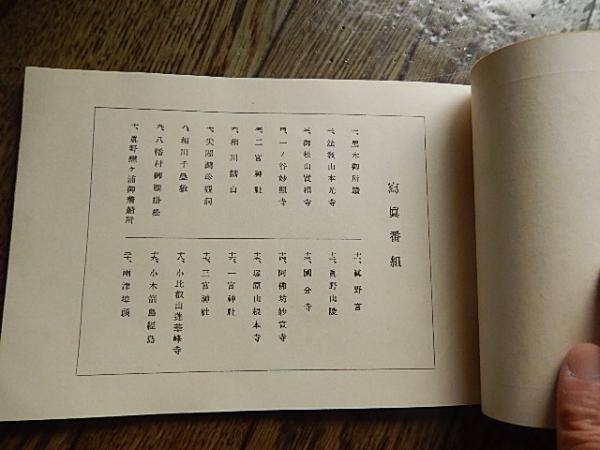 寫眞番組
一、黒木御所蹟
二、法敎山本光寺
三、御松山實相寺
四、一ノ谷妙照寺
五、二宮神社
六、相川鑛山
七、尖閣灣
八、相川千疊敷
九、八幡村御腰掛松
十、眞野戀ヶ浦御着船所
十一、眞野宮
十二、眞野山陵
十三、國分寺
十四、阿佛坊妙宣寺
十五、塚原山根本寺
十六、一宮神社
十七、三宮神社
十八、小比叡山蓮華峰寺
十九、小木
二十、